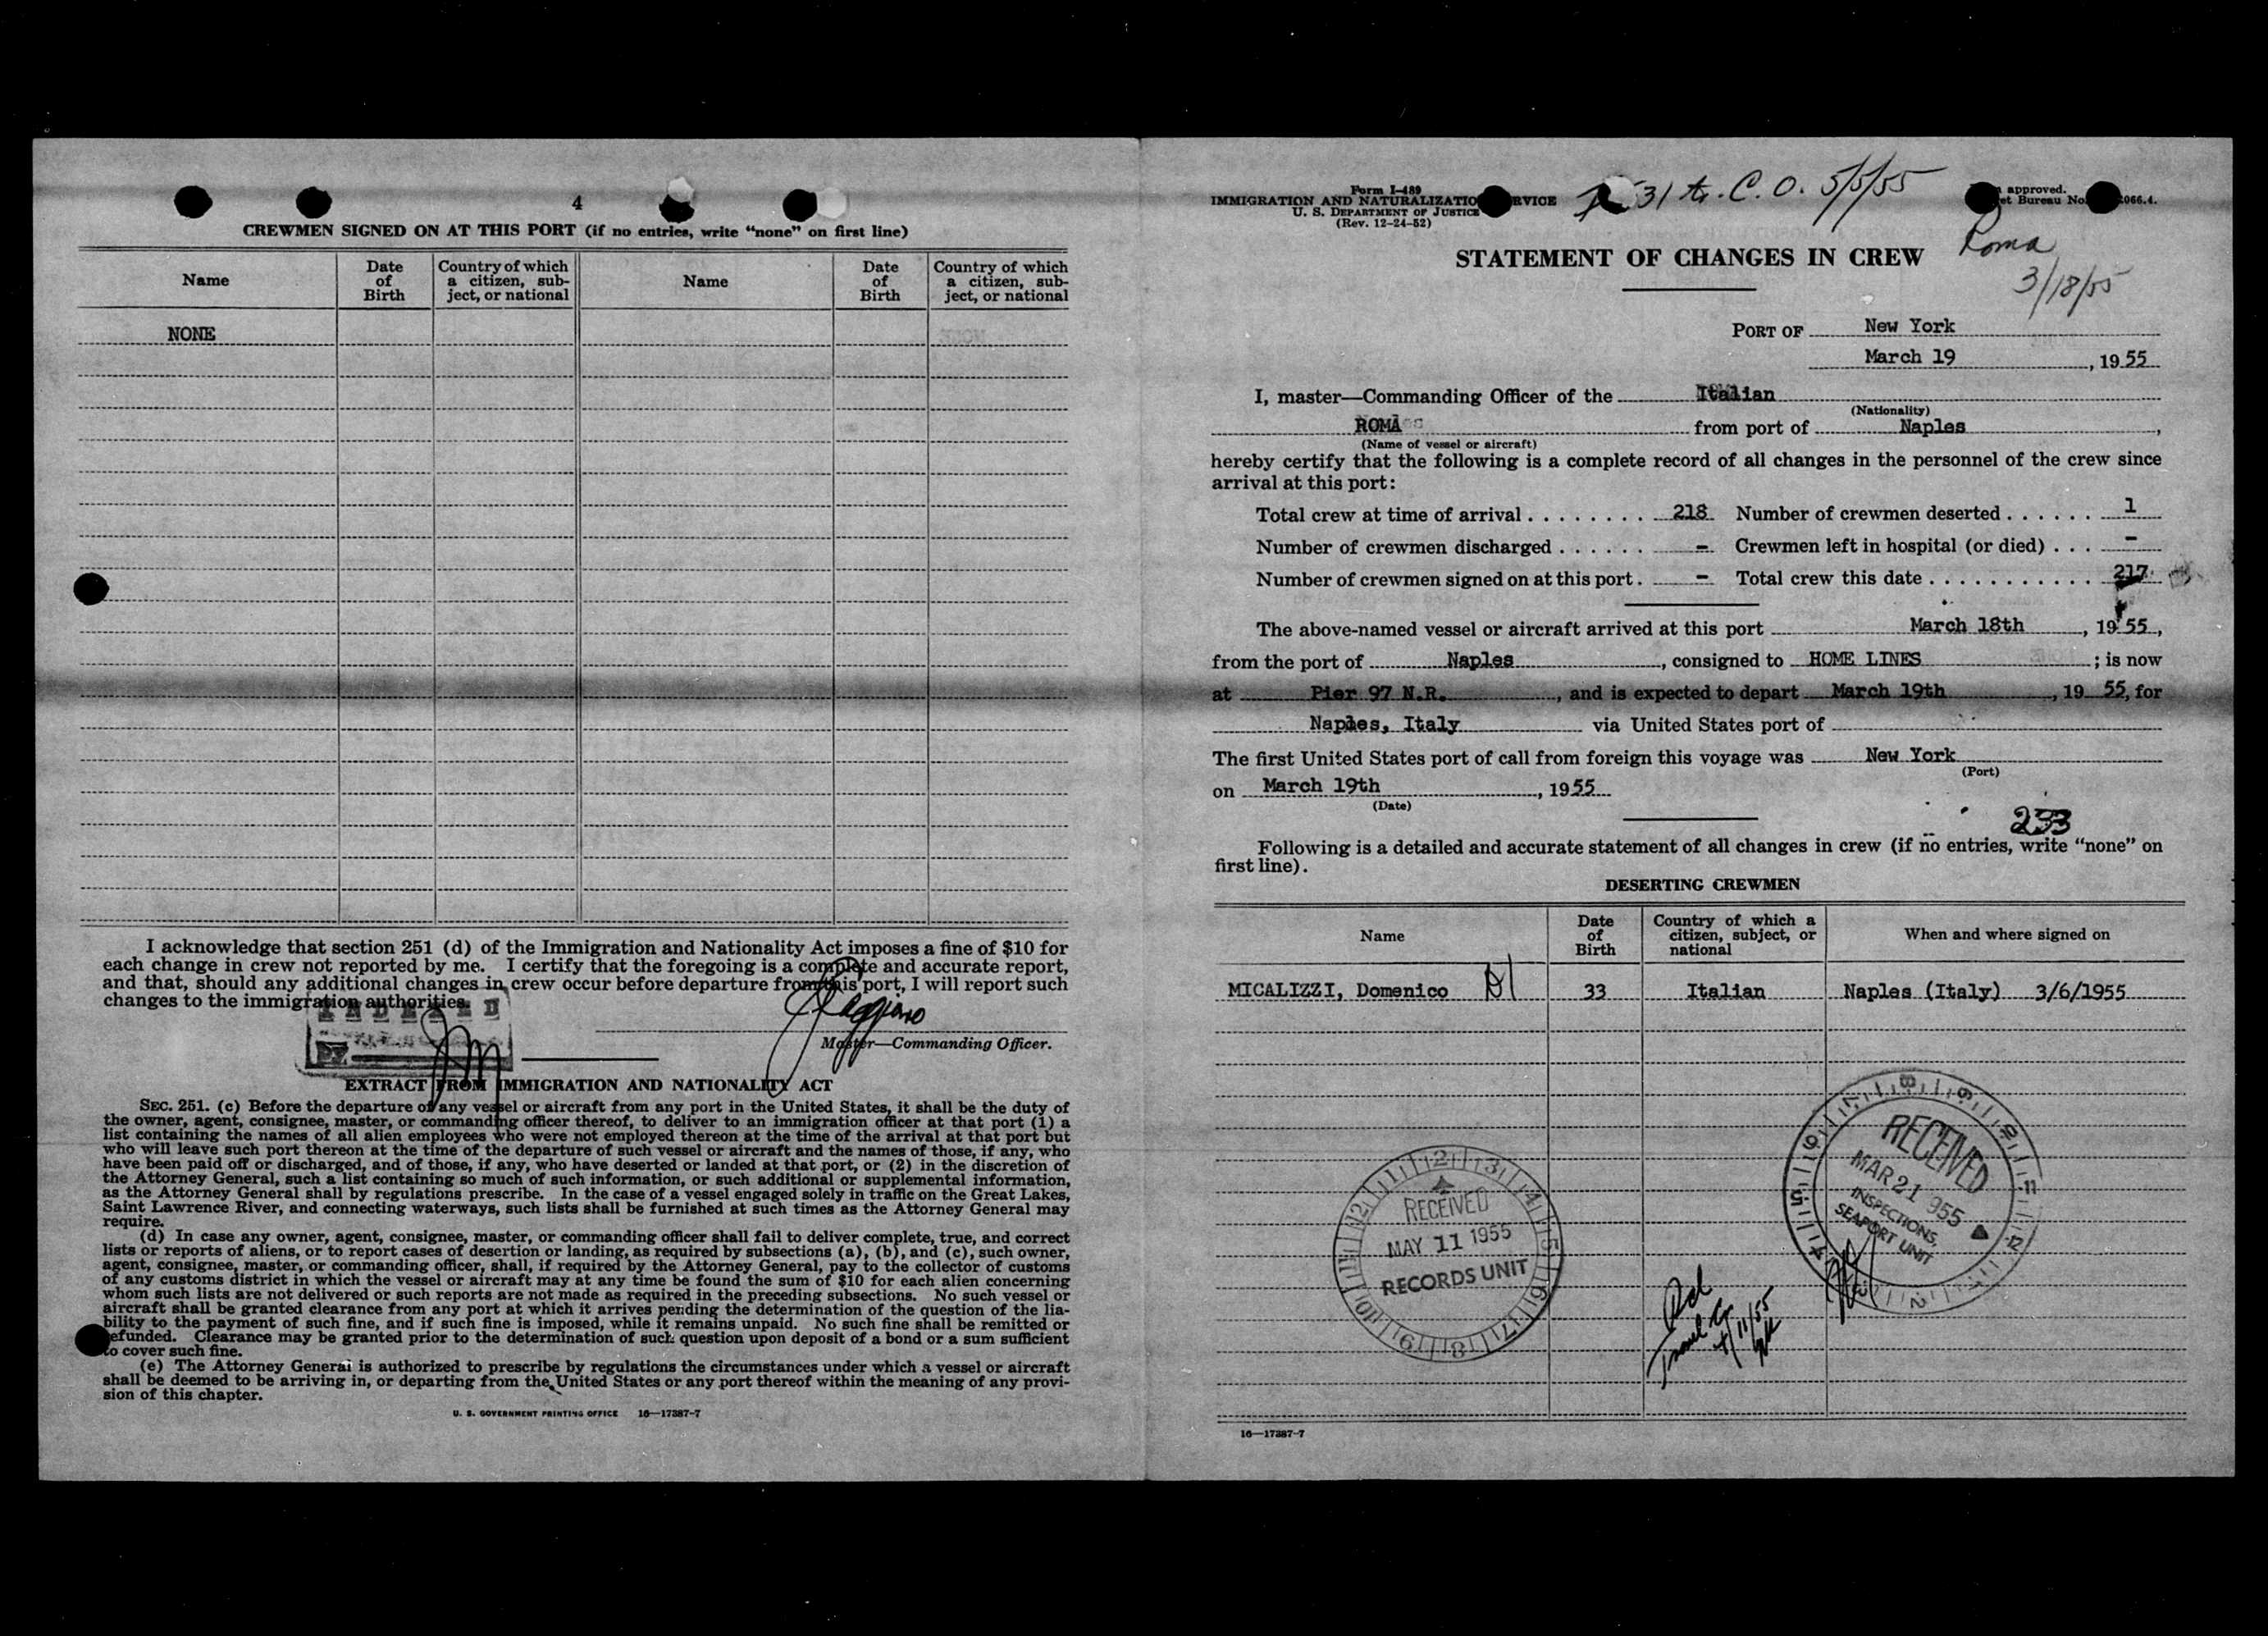 4
CREWMEN SIGNED ON AT THIS PORT (if no entries, write “none” on first line)
Name
Date of Birth
Country of which a citizen, subject, or national
Name
Date of Birth
Country of which a citizen, subject, or national
NONE
I acknowledge that section 251 (d) of the Immigration and Nationality Act imposes a fine of $10 for
each change in crew not reported by me. I certify that the foregoing is a complete and accurate report,
and that, should any additional changes in crew occur before departure from this port, I will report such
changes to the immigration authorities.
INDEXED
BY
Master—Commanding Officer.
EXTRACT FROM IMMIGRATION AND NATIONALITY ACT
SEC. 251. (c) Before the departure of any vessel or aircraft from any port in the United States, it shall be the duty of
the owner, agent, consignee, master, or commanding officer thereof, to deliver to an immigration officer at that port (1) a
list containing the names of all alien employees who were not employed thereon at the time of the arrival at that port but
who will leave such port thereon at the time of the departure of such vessel or aircraft and the names of those, if any, who
have been paid off or discharged, and of those, if any, who have deserted or landed at that port, or (2) in the discretion of
the Attorney General, such a list containing so much of such information, or such additional or supplemental information,
as the Attorney General shall by regulations prescribe. In the case of a vessel engaged solely in traffic on the Great Lakes,
Saint Lawrence River, and connecting waterways, such lists shall be furnished at such times as the Attorney General may
require.
(d) In case any owner, agent, consignee, master, or commanding officer shall fail to deliver complete, true, and correct
lists or reports of aliens, or to report cases of desertion or landing, as required by subsections (a), (b), and (c), such owner,
agent, consignee, master, or commanding officer, shall, if required by the Attorney General, pay to the collector of customs
of any customs district in which the vessel or aircraft may at any time be found the sum of $10 for each alien concerning
whom such lists are not delivered or such reports are not made as required in the preceding subsections. No such vessel or
aircraft shall be granted clearance from any port at which it arrives pending the determination of the question of the lia-
bility to the payment of such fine, and if such fine is imposed, while it remains unpaid. No such fine shall be remitted or
refunded. Clearance may be granted prior to the determination of such question upon deposit of a bond or a sum sufficient
to cover such fine.
(e) The Attorney General is authorized to prescribe by regulations the circumstances under which a vessel or aircraft
shall be deemed to be arriving in, or departing from the United States or any port thereof within the meaning of any provi-
sion of this chapter.
U. S. GOVERNMENT PRINTING OFFICE 16—17387-7
Form I-489
IMMIGRATION AND NATURALIZATIO RVICE
U. S. DEPARTMENT OF JUSTICE
(Rev. 12-24-52)
31 C. O. 5/5/55
approved.
et Bureau No. 066.4.
Roma
3/18/55
STATEMENT OF CHANGES IN CREW
PORT OF New York
March 19, 1955
I, master—Commanding Officer of the Italian
(Nationality)
ROMA from port of Naples,
(Name of vessel or aircraft)
hereby certify that the following is a complete record of all changes in the personnel of the crew since
arrival at this port:
Total crew at time of arrival . . . . . . . . 218 Number of crewmen deserted . . . . . . 1
Number of crewmen discharged . . . . . . - Crewmen left in hospital (or died) . . . -
Number of crewmen signed on at this port . - Total crew this date . . . . . . . . . . . . 217
The above-named vessel or aircraft arrived at this port March 18th, 1955,
from the port of Naples, consigned to HOME LINES; is now
at Pier 97 N.R., and is expected to depart March 19th, 19 55, for
Naples, Italy via United States port of
The first United States port of call from foreign this voyage was New York
(Port)
on March 19th, 1955
(Date)
233
Following is a detailed and accurate statement of all changes in crew (if no entries, write “none” on
first line).
DESERTING CREWMEN
Name
Date of Birth
Country of which a citizen, subject, or national
When and where signed on
MICALIZZI, Domenico 33 Italian Naples (Italy) 3/6/1955
RECEIVED
MAR 21 955
INSPECTIONS,
SEAPORT UNIT
RECEIVED
MAY 11 1955
RECORDS UNIT
16—17387-7